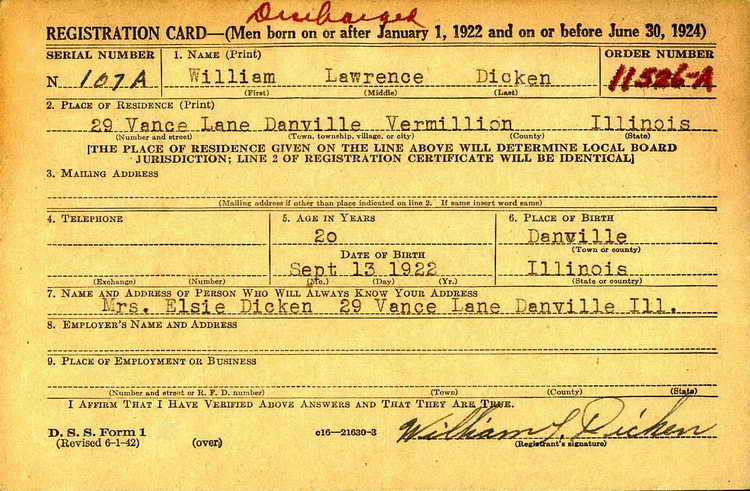 Discharged
REGISTRATION CARD—(Men born on or after January 1, 1922 and on or before June 30, 1924)
SERIAL NUMBER 1. NAME (Print) ORDER NUMBER
N 107A William Lawrence Dicken 11526-A
(First) (Middle) (Last)
2. PLACE OF RESIDENCE (Print)
29 Vance Lane Danville Vermillion Illinois
(Number and street) (Town, township, village, or city) (County) (State)
[THE PLACE OF RESIDENCE GIVEN ON THE LINE ABOVE WILL DETERMINE LOCAL BOARD
JURISDICTION; LINE 2 OF REGISTRATION CERTIFICATE WILL BE IDENTICAL]
3. MAILING ADDRESS
(Mailing address if other than place indicated on line 2. If same insert word same)
4. TELEPHONE 5. AGE IN YEARS 6. PLACE OF BIRTH
20 Danville
DATE OF BIRTH (Town or county)
Sept 13 1922 Illinois
(Exchange) (Number) (Mo.) (Day) (Yr.) (State or country)
7. NAME AND ADDRESS OF PERSON WHO WILL ALWAYS KNOW YOUR ADDRESS
Mrs. Elsie Dicken 29 Vance Lane Danville Ill.
8. EMPLOYER'S NAME AND ADDRESS
9. PLACE OF EMPLOYMENT OR BUSINESS
(Number and street or R. F. D. number) (Town) (County) (State)
I AFFIRM THAT I HAVE VERIFIED ABOVE ANSWERS AND THAT THEY ARE TRUE.
D. S. S. Form 1 c16—21630-3 William L. Dicken
(Revised 6-1-42) (over) (Registrant's signature)